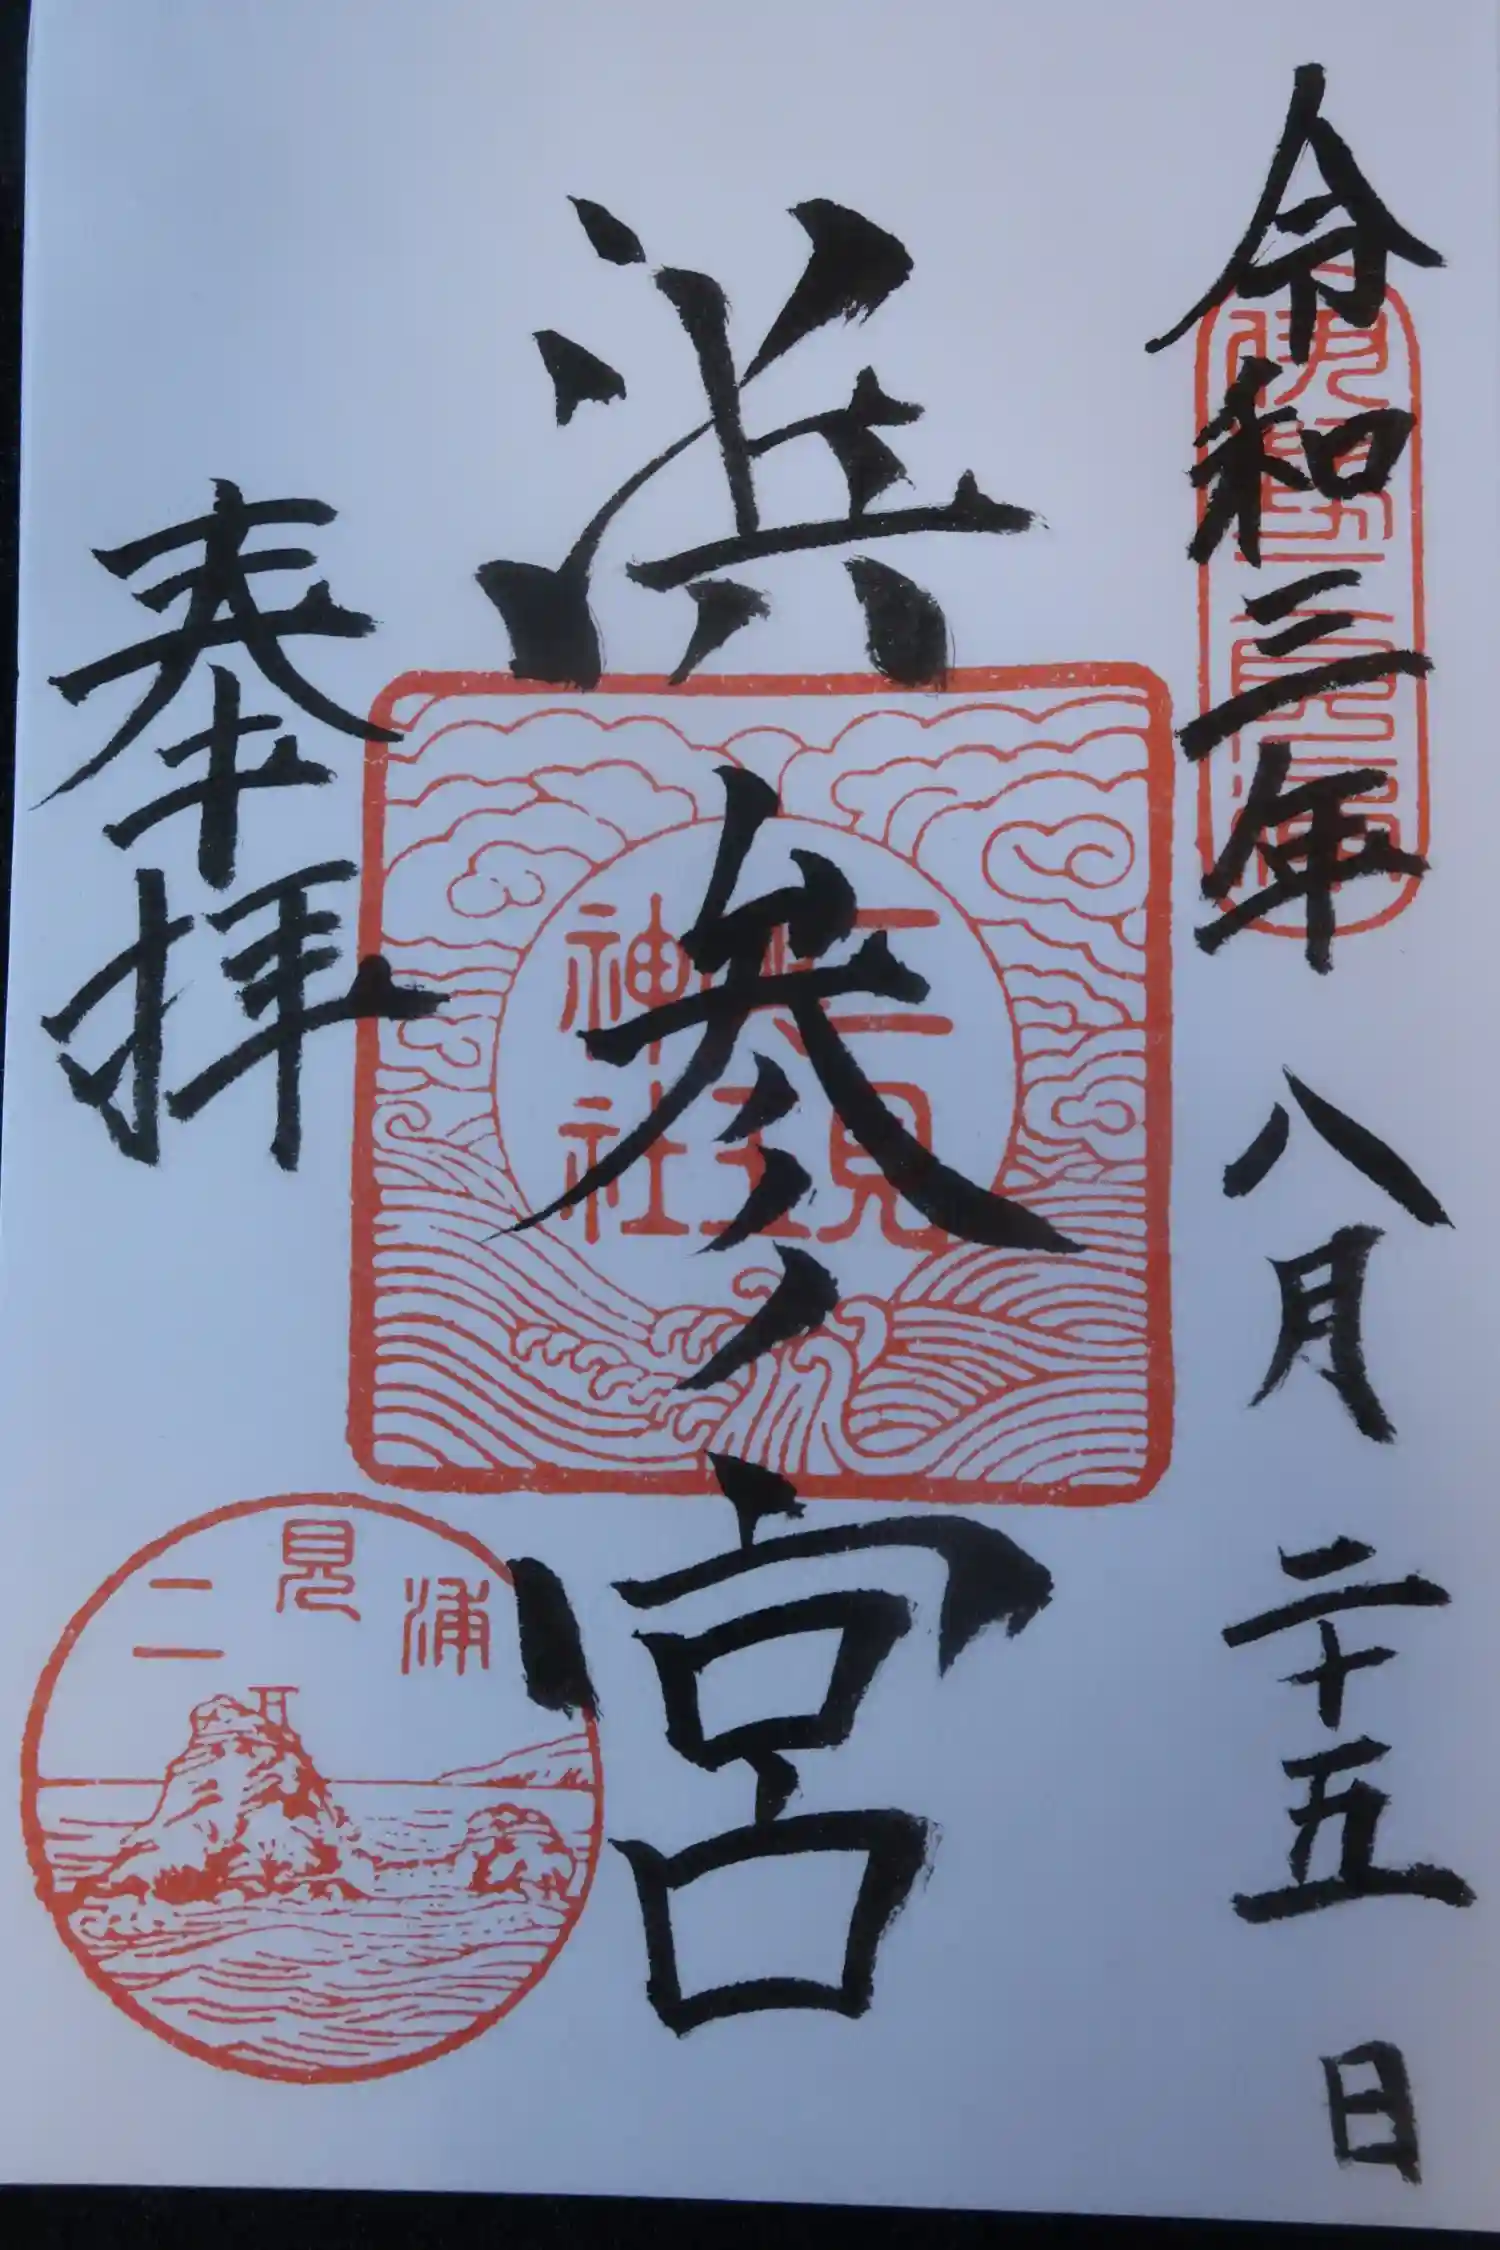 令和三年八月二十五日
伊勢二見浦
浜参宮
二見
興玉
神社
奉拝
二見浦